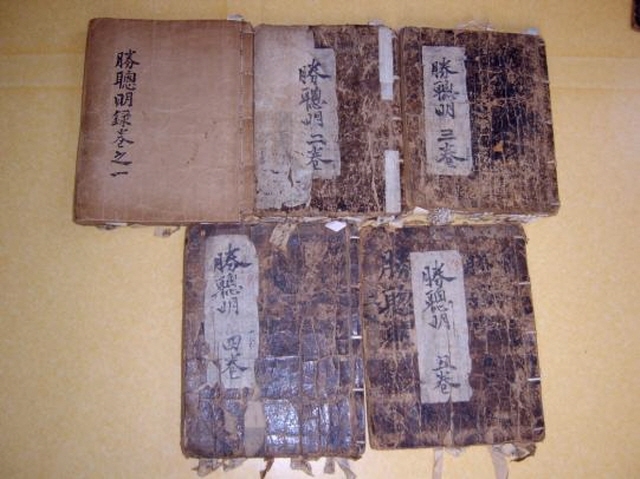 勝聰明録巻之一
勝聰明二巻
勝聰明三巻
勝聰明四巻
勝聰明五巻